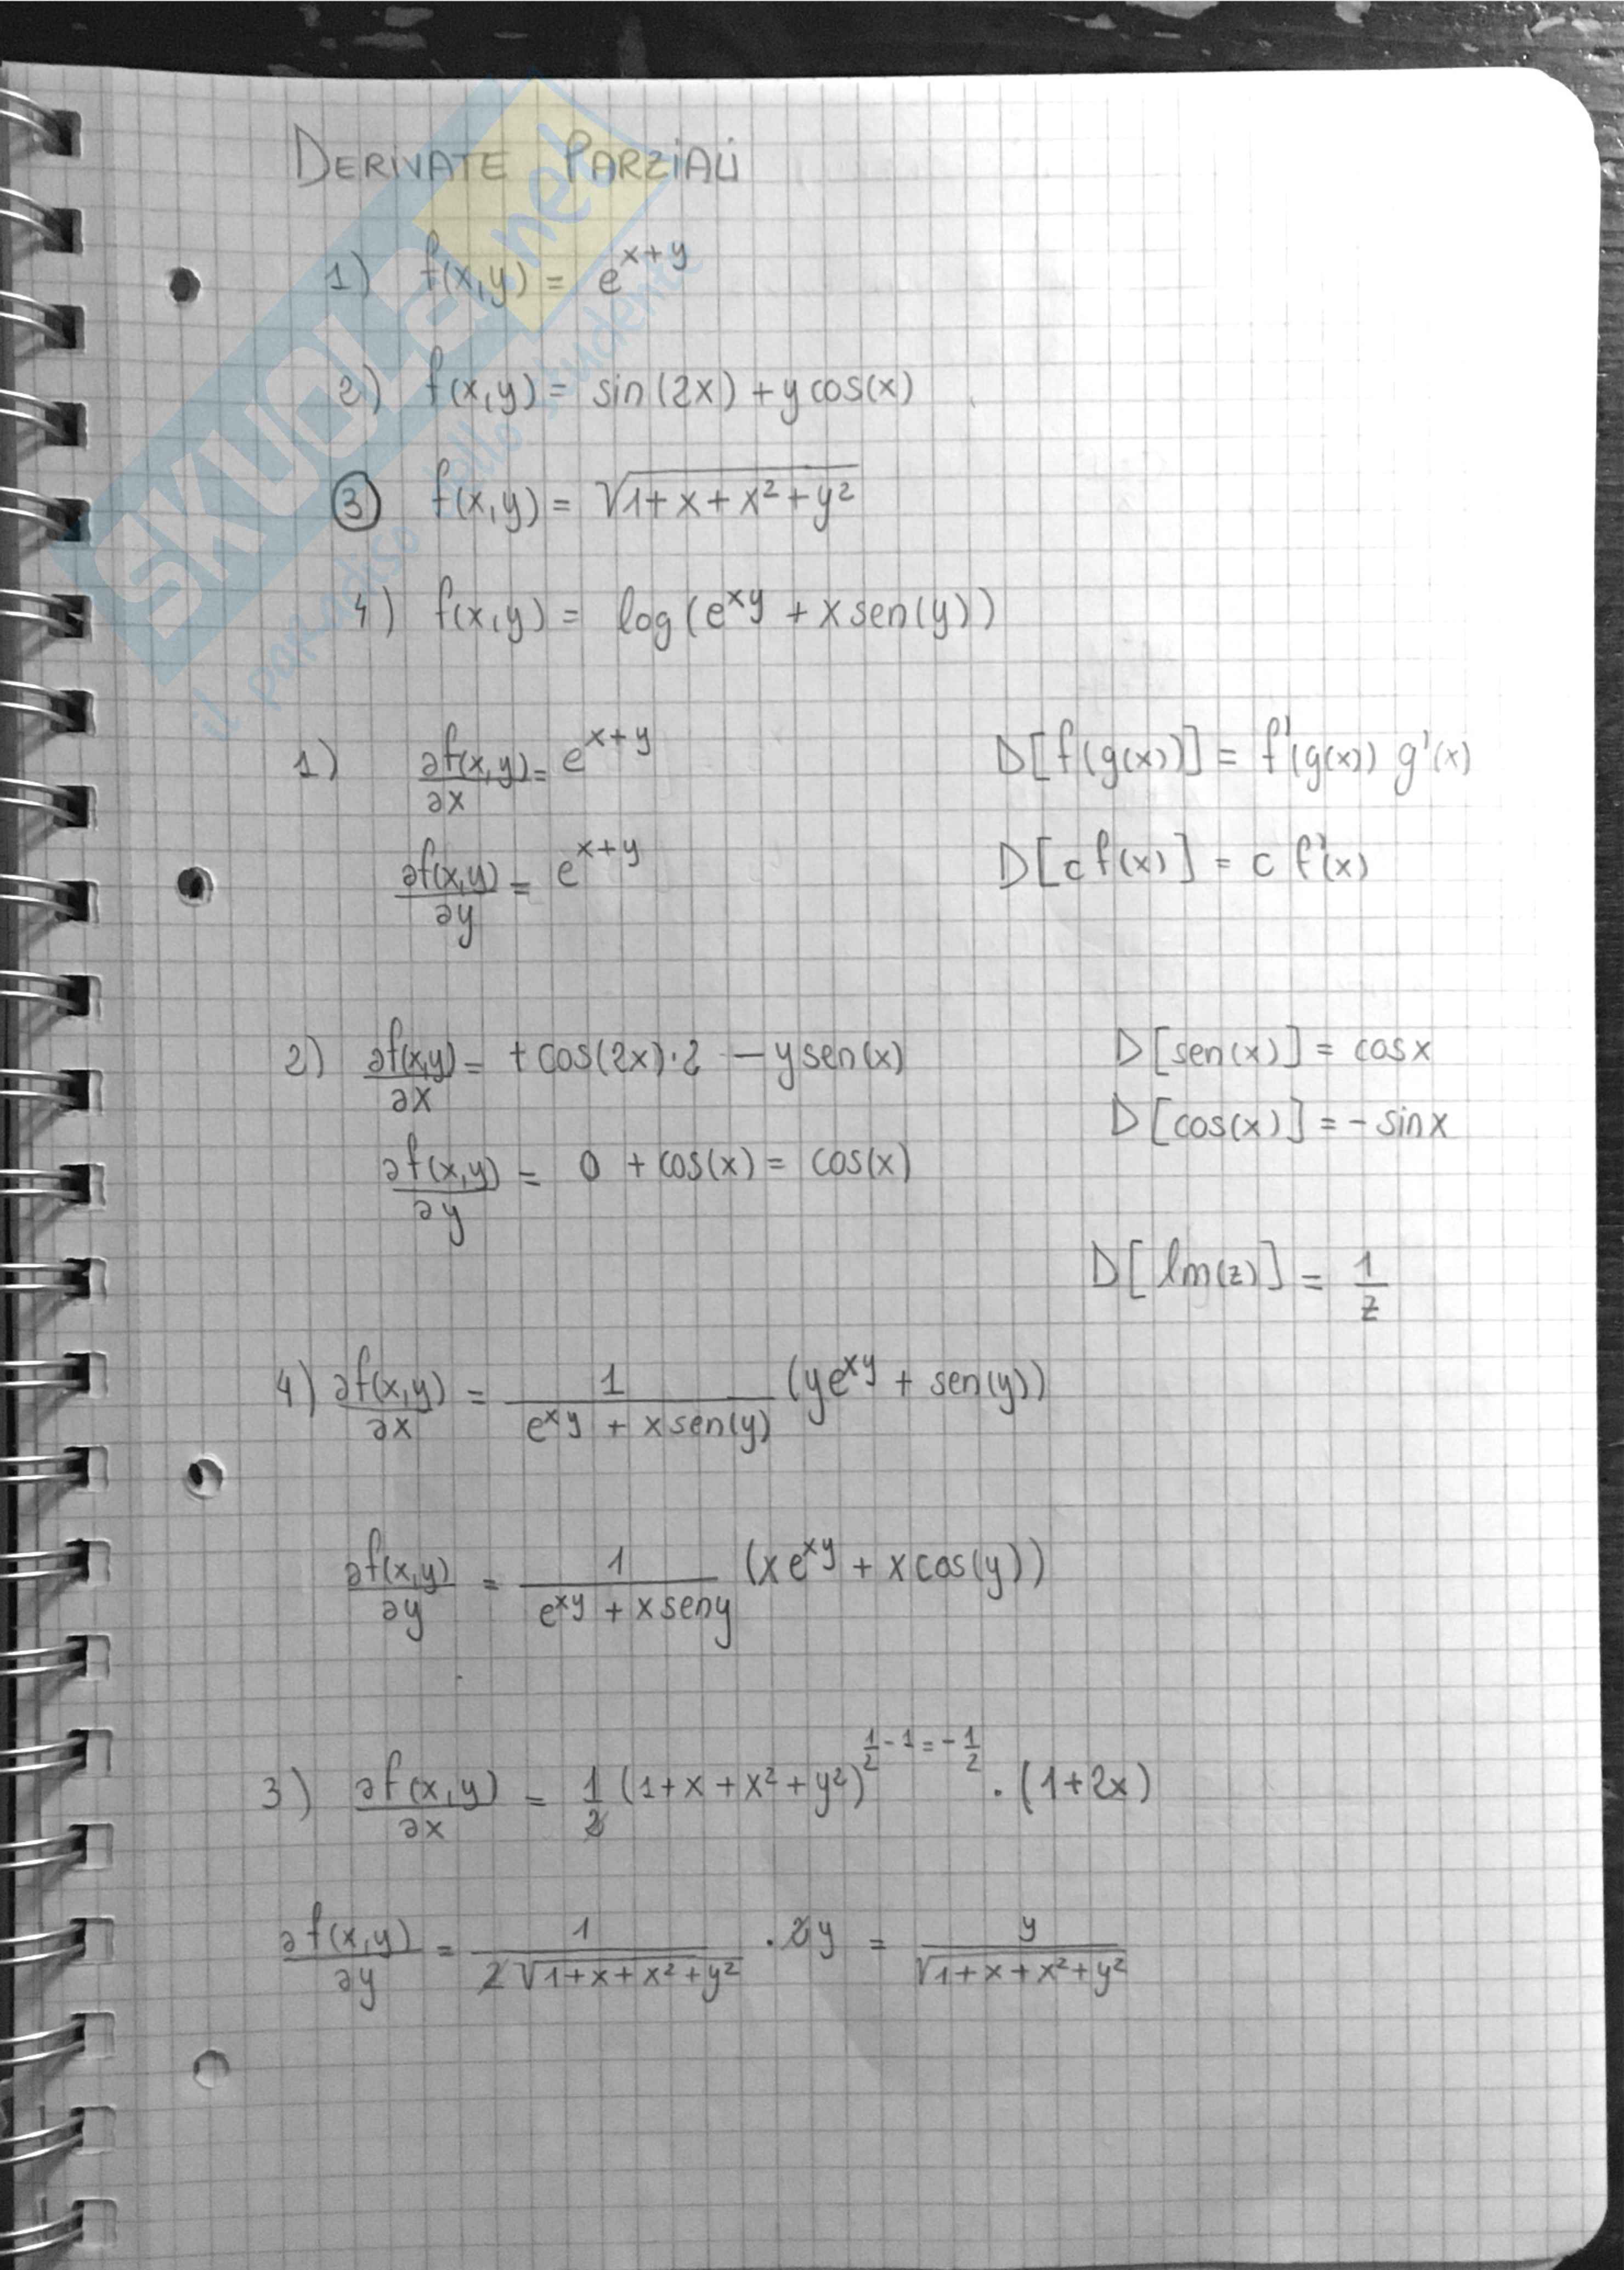 DERIVATE PARZIALI
1) f(x,y) = e^{x+y}
2) f(x,y) = sin(2x) + y cos(x)
3) f(x,y) = √(1+x+x²+y²)
4) f(x,y) = log(e^{xy} + x sen(y))
1) ∂f(x,y)/∂x = e^{x+y}
D[f(g(x))] = f'(g(x)) g'(x)
∂f(x,y)/∂y = e^{x+y}
D[c f(x)] = c f'(x)
2) ∂f(x,y)/∂x = +cos(2x)·2 - y sen(x)
D[sen(x)] = cosx
D[cos(x)] = -sinx
∂f(x,y)/∂y = 0 + cos(x) = cos(x)
D[ln(z)] = 1/z
4) ∂f(x,y)/∂x = 1/(e^{xy} + x sen(y)) (ye^{xy} + sen(y))
∂f(x,y)/∂y = 1/(e^{xy} + x seny) (xe^{xy} + x cos(y))
3) ∂f(x,y)/∂x = 1/2 (1+x+x²+y²)^{1/2 - 1 = -1/2} · (1+2x)
∂f(x,y)/∂y = 1/(2√(1+x+x²+y²)) · 2y = y/√(1+x+x²+y²)
SKUOLA.net
il paradiso dello studente